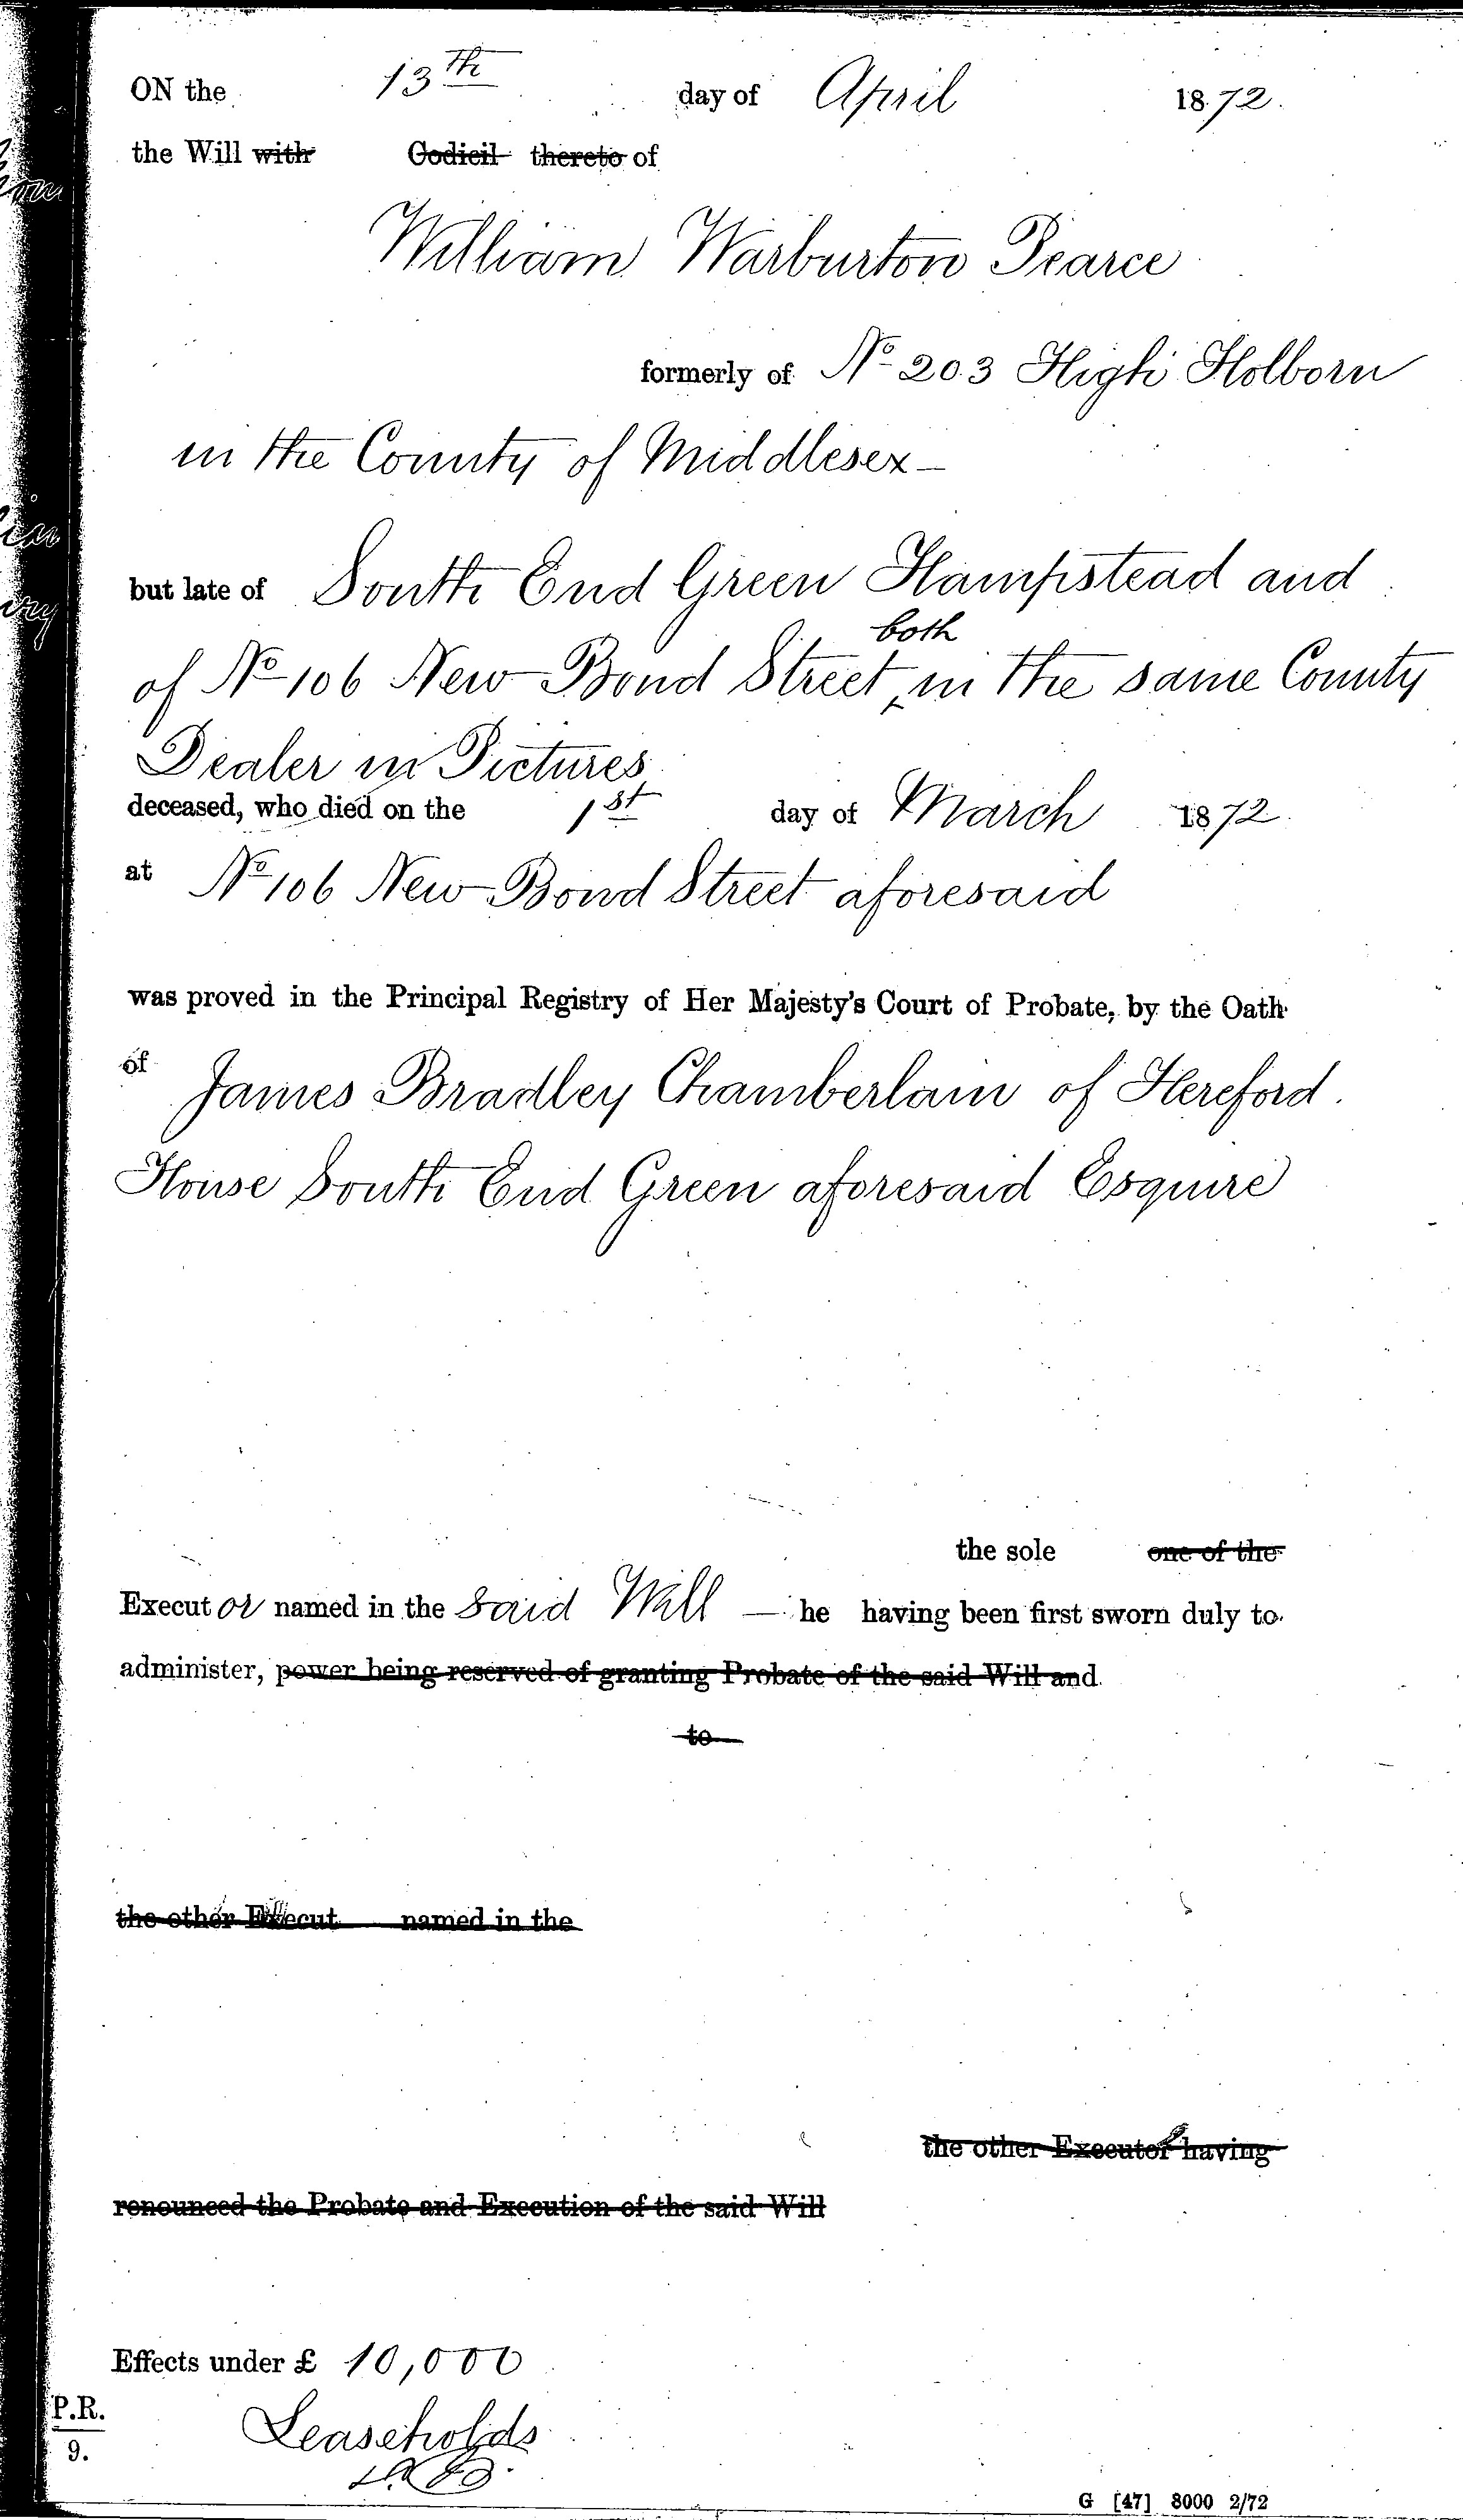 ON the 13th day of April 1872.
the Will with Codicil thereto of
William Warburton Pearce
formerly of No 203 High Holborn
in the County of Middlesex -
but late of South End Green Hampstead and
both
of No 106 New Bond Street ‸ in the same County
Dealer in Pictures
deceased, who died on the 1st day of March 1872.
at No 106 New Bond Street aforesaid
was proved in the Principal Registry of Her Majesty's Court of Probate, by the Oath
of James Bradley Chamberlain of Hereford
House South End Green aforesaid Esquire
the sole one of the
Executor named in the said Will — he having been first sworn duly to
administer, power being reserved of granting Probate of the said Will and
to
the other Execut named in the
the other Executor having
renounced the Probate and Execution of the said Will
Effects under £ 10,000
P.R.
9.
Leaseholds
G [47] 8000 2/72